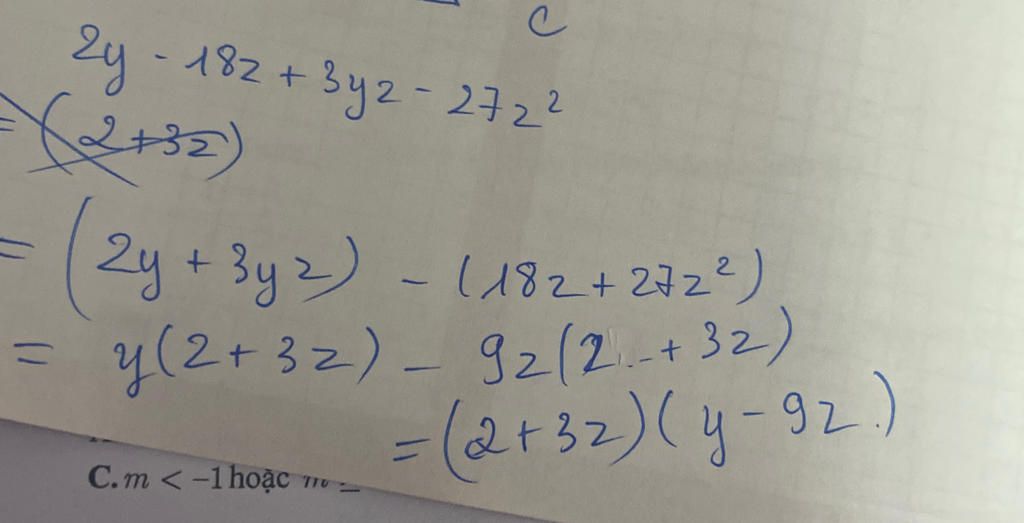 C
2y - 18z + 3yz - 27z²
= (2+3z)
= (2y + 3yz) - (18z + 27z²)
= y(2 + 3z) - 9z(2 + 3z)
= (2+3z)(y - 9z)
C. m < -1 hoặc m